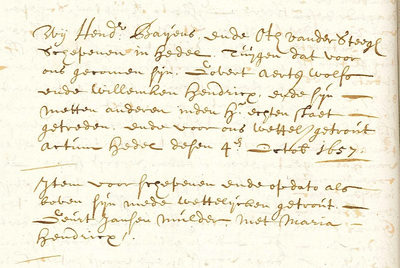 Wij Hendr. Baijens, ende Otto vander Steegh
Schepenen in Hedel, Tuijgen dat voor
ons gecomen sijn, Govert Aerts Wolfs
ende Willemken Hendricx, ende sijn
metten anderen inden H. echten staet
getreden, ende voor ons wettel. getrout
Actum Hedel desen 4en Octob 1657.
Item voor schepenen ende op dato als
boven sijn mede wettelijcken getrout.
Geurt Jansen Mulder, met Maria
Hendricx.